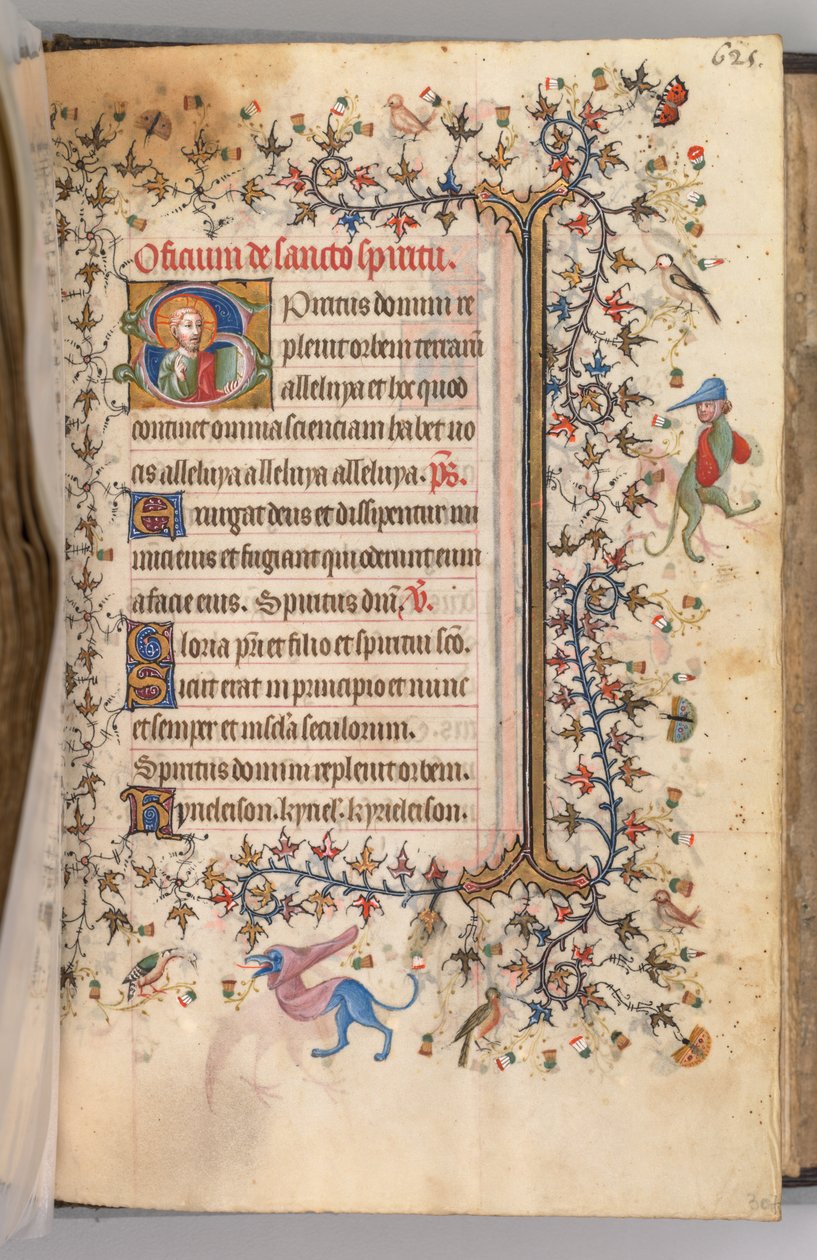 625.
Oficium de sancto spiritu.
Spiritus domini re
pleuit orbem terrarũ
alleluya et hoc quod
continet omnia scienciam habet uo
cis alleluya alleluya alleluya. p̃s.
Exurgat deus et dissipentur ini
mici eius et fugiant qui oderunt eum
a facie eius. Spiritus dñi. Ṽ.
Gloria pr̃i et filio et spiritui sc̃o.
Sicut erat in principio et nunc
et semper et in sc̃la seculorum.
Spiritus domini repleuit orbem.
Kyrieleison. kyriel. kyrieleison.